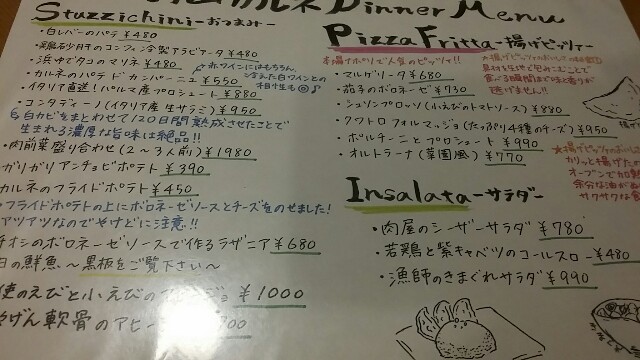 カルネ Dinner Menu
Stuzzichini -おつまみ-
・白レバーのパテ ¥480
砂肝のコンフィ 冷製アラビアータ ¥480
・浜ゆでタコのマリネ ¥480
カルネのパテ ド カンパーニュ ¥550
・イタリア直送！パルマ産プロシュート ¥880
・コンタディーノ(イタリア産 生サラミ) ¥950
白カビをまとわせて120日間熟成させたことで
生まれる濃厚な旨味は絶品！！
・肉前菜盛り合わせ(2～3人前) ¥1980
ガリガリアンチョビポテト ¥390
カルネのフライドポテト ¥450
・フライドポテトの上にボロネーゼソースとチーズをのせました！
アツアツなのでやけどに注意！！
のボロネーゼソースで作るラザニア ¥680
日の鮮魚 ～黒板をご覧下さい～
使のえびと小えびの ¥1000
軟骨のアヒージョ
Pizza Fritta -揚げピッツァ-
本場ナポリで人気のピッツァ!!
・マルゲリータ ¥680
・茄子のボロネーゼ ¥930
・シュリンプロッソ(小えびのトマトソース) ¥880
・クワトロフォルマッジョ(たっぷり4種のチーズ) ¥950
・ポルチーニとプロシュート ¥990
・オルトラーナ(菜園風) ¥770
具材を生地で包みこむことで
食べる瞬間まで味と香りが
逃げません!!
カリッと揚げた
オーブンで加熱
余分な油が
サクサクな食
Insalata -サラダ-
・肉屋のシーザーサラダ ¥780
・若鶏と紫キャベツのコールスロー ¥480
・漁師のきまぐれサラダ ¥990